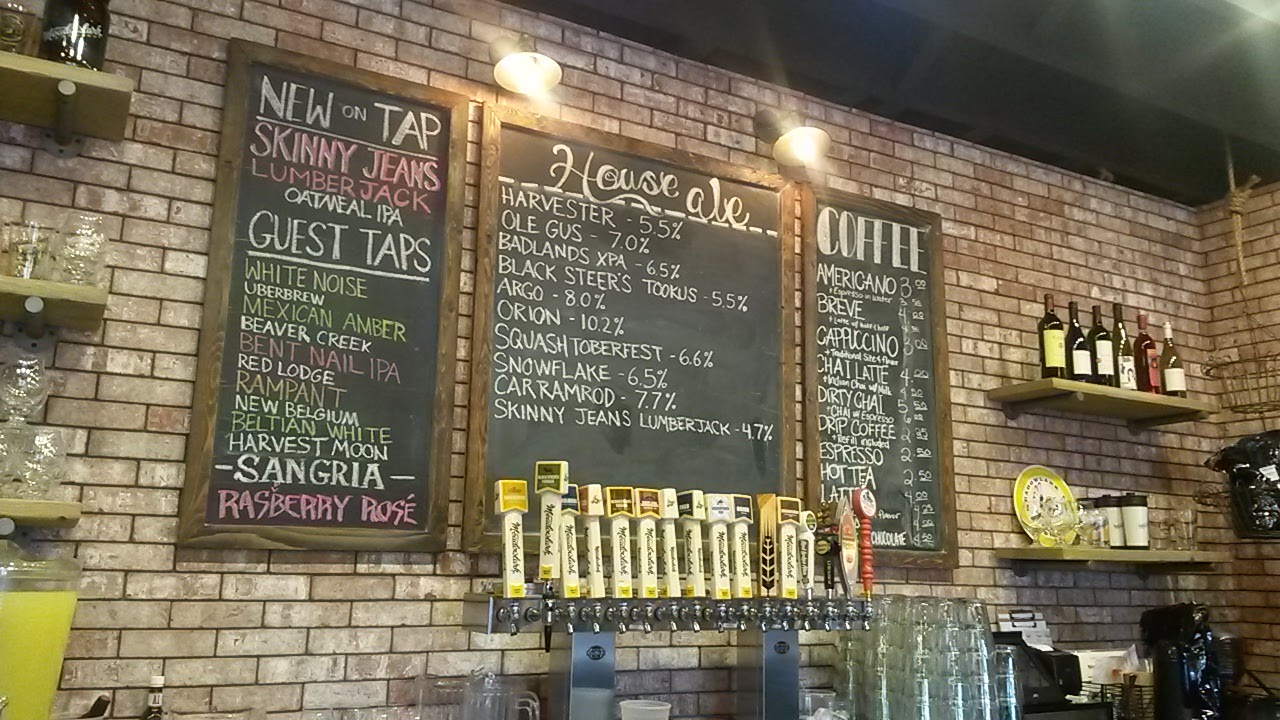 NEW ON TAP
SKINNY JEANS
LUMBERJACK
OATMEAL IPA
GUEST TAPS
WHITE NOISE
UBERBREW
MEXICAN AMBER
BEAVER CREEK
BENT NAIL IPA
RED LODGE
RAMPANT
NEW BELGIUM
BELTIAN WHITE
HARVEST MOON
-SANGRIA-
RASBERRY ROSÉ
House ale
HARVESTER - 5.5%
OLE GUS - 7.0%
BADLANDS XPA - 6.5%
BLACK STEER'S TOOKUS - 5.5%
ARGO - 8.0%
ORION - 10.2%
SQUASHTOBERFEST - 6.6%
SNOWFLAKE - 6.5%
CARRAMROD - 7.7%
SKINNY JEANS LUMBERJACK - 4.7%
COFFEE
AMERICANO 3.00
+Espresso in Water
BREVE
CAPPUCCINO
CHAI LATTE
+Indian Chai w/ Milk
DIRTY CHAI
+CHAI w/ Espresso
DRIP COFFEE
+Refill included
ESPRESSO
HOT TEA
LATTE
flavor
CHOCOLATE
Meadowlark